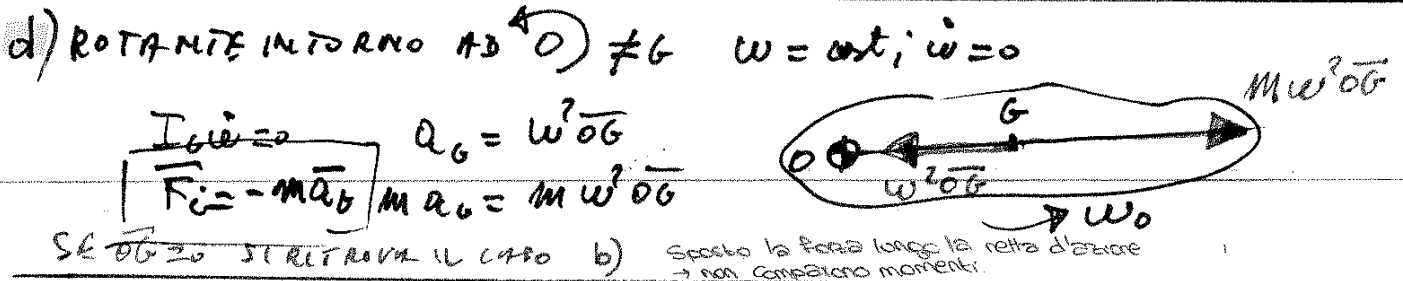 d) ROTANTE INTORNO AD O ≠ G ω = cost; ω̇ = 0
mω²OG̅
I_G ω̇ = 0 a_G = ω²OG̅
G
O
F̅i = -m a̅_G m a_G = m ω² OG̅
ω²OG̅
ω₀
SE OG̅ = 0 SI RITROVA IL CASO b) Sposto la forza lungo la retta d'azione
→ non compaiono momenti.